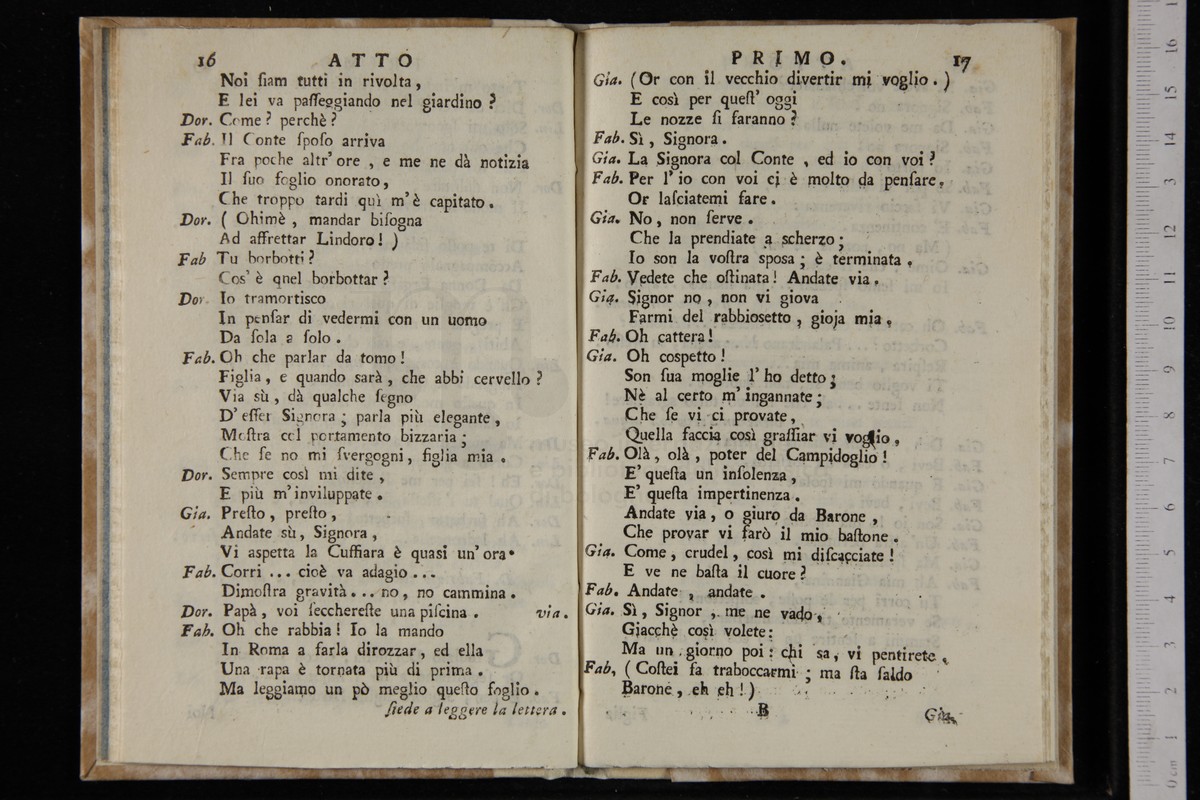 16 ATTO
Noi ſiam tutti in rivolta,
E lei va paſſeggiando nel giardino ?
Dor. Come? perchè ?
Fab. Il Conte ſpoſo arriva
Fra poche altr' ore , e me ne dà notizia
Il ſuo foglio onorato,
Che troppo tardi quì m' è capitato.
Dor. ( Ohimè , mandar biſogna
Ad affrettar Lindoro! )
Fab Tu borbotti ?
Cos' è qnel borbottar ?
Dor. Io tramortisco
In penſar di vedermi con un uomo
Da ſola a ſolo .
Fab. Oh che parlar da tomo !
Figlia , e quando sarà , che abbi cervello ?
Via sù , dà qualche ſegno
D' eſſer Signora ; parla più elegante ,
Moſtra col portamento bizzaria ;
Che ſe no mi ſvergogni, figlia mia .
Dor. Sempre così mi dite ,
E più m' inviluppate .
Gia. Preſto , preſto ,
Andate sù, Signora ,
Vi aspetta la Cuffiara è quasi un' ora•
Fab. Corri ... cioè va adagio ...
Dimoſtra gravità ... no, no cammina .
Dor. Papà , voi ſecchereſte una piſcina . via.
Fab. Oh che rabbia! Io la mando
In Roma a farla dirozzar, ed ella
Una rapa è tornata più di prima .
Ma leggiamo un pò meglio queſto foglio .
ſiede a leggere la lettera .
PRIMO. 17
Gia. (Or con il vecchio divertir mi voglio . )
E così per queſt' oggi
Le nozze ſi faranno ?
Fab. Sì , Signora .
Gia. La Signora col Conte , ed io con voi ?
Fab. Per l' io con voi ci è molto da penſare,
Or laſciatemi fare .
Gia. No, non ſerve .
Che la prendiate a scherzo ;
Io son la voſtra sposa ; è terminata .
Fab. Vedete che oſtinata! Andate via .
Gia. Signor no , non vi giova
Farmi del rabbiosetto , gioja mia ,
Fab. Oh cattera!
Gia. Oh cospetto !
Son ſua moglie l' ho detto ;
Nè al certo m' ingannate ;
Che ſe vi ci provate,
Quella faccia così graffiar vi voglio ,
Fab. Olà , olà , poter del Campidoglio !
E' queſta un inſolenza ,
E' queſta impertinenza .
Andate via , o giuro da Barone ,
Che provar vi farò il mio baſtone .
Gia. Come , crudel , così mi diſcacciate !
E ve ne baſta il cuore ?
Fab. Andate , andate .
Gia. Sì , Signor , me ne vado ,
Giacchè così volete :
Ma un giorno poi : chi sa , vi pentirete ,
Fab, ( Coſtei fa traboccarmi ; ma ſta ſaldo
Barone , eh eh ! )
B Gia.